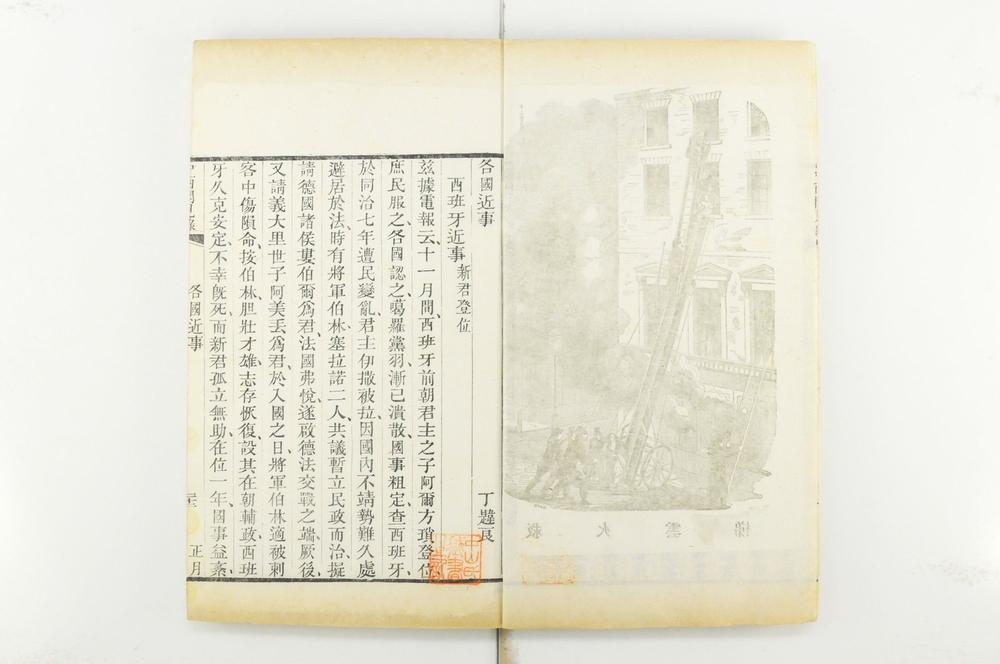 各國近事
丁韙良
西班牙近事 新君登位
茲據電報云、十一月間、西班牙前朝君主之子阿爾方瑣登位、
庶民服之、各國認之、噶羅黨羽、漸已潰散、國事粗定、查西班牙、
於同治七年遭民變亂、君主伊撒被拉、因國內不靖、勢難久處、
避居於法、時有將軍伯林、塞拉諾二人、共議暫立民政而治、擬
請德國諸侯婁伯爾爲君、法國弗悅、遂啟德法交戰之端、厥後、
又請義大里世子阿美丟爲君、於入國之日、將軍伯林適被刺
客中傷隕命、按伯林胆壯才雄、志存恢復、設其在朝輔政、西班
牙久克安定、不幸旣死、而新君孤立無助、在位一年、國事益紊、
各國近事
正月
救火雲梯